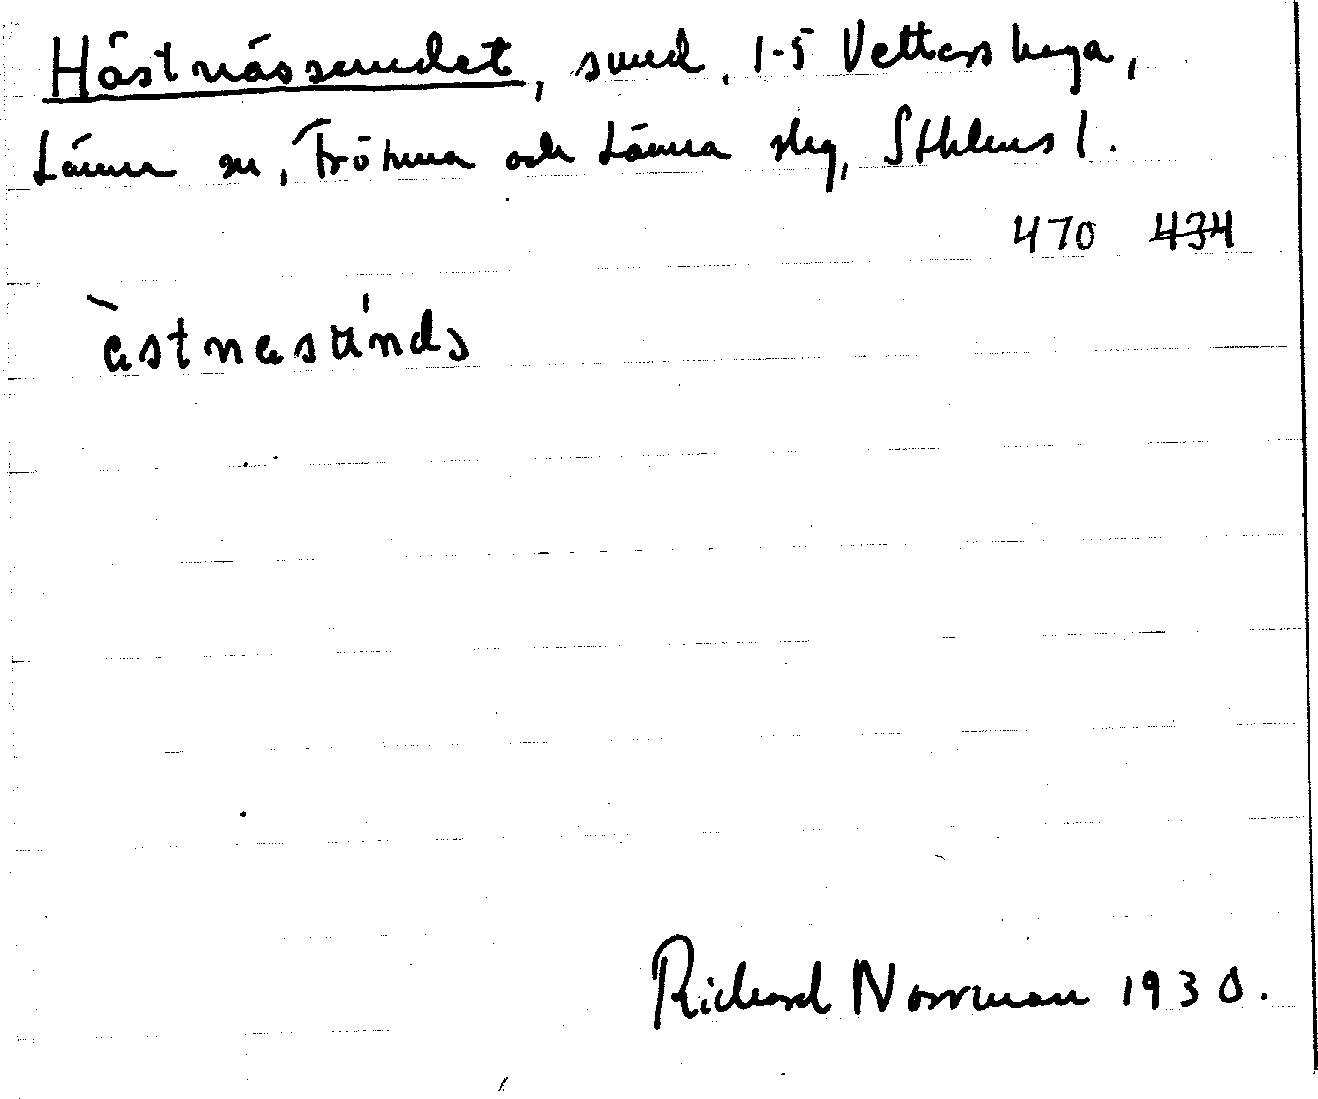 Hästnässundet, sund, 1-5 Vettershaga,
Länna sn, Frötuna och Länna slg, Sthlms l.
470 434
̀astnasu̍nds
Richard Norrman 1930.